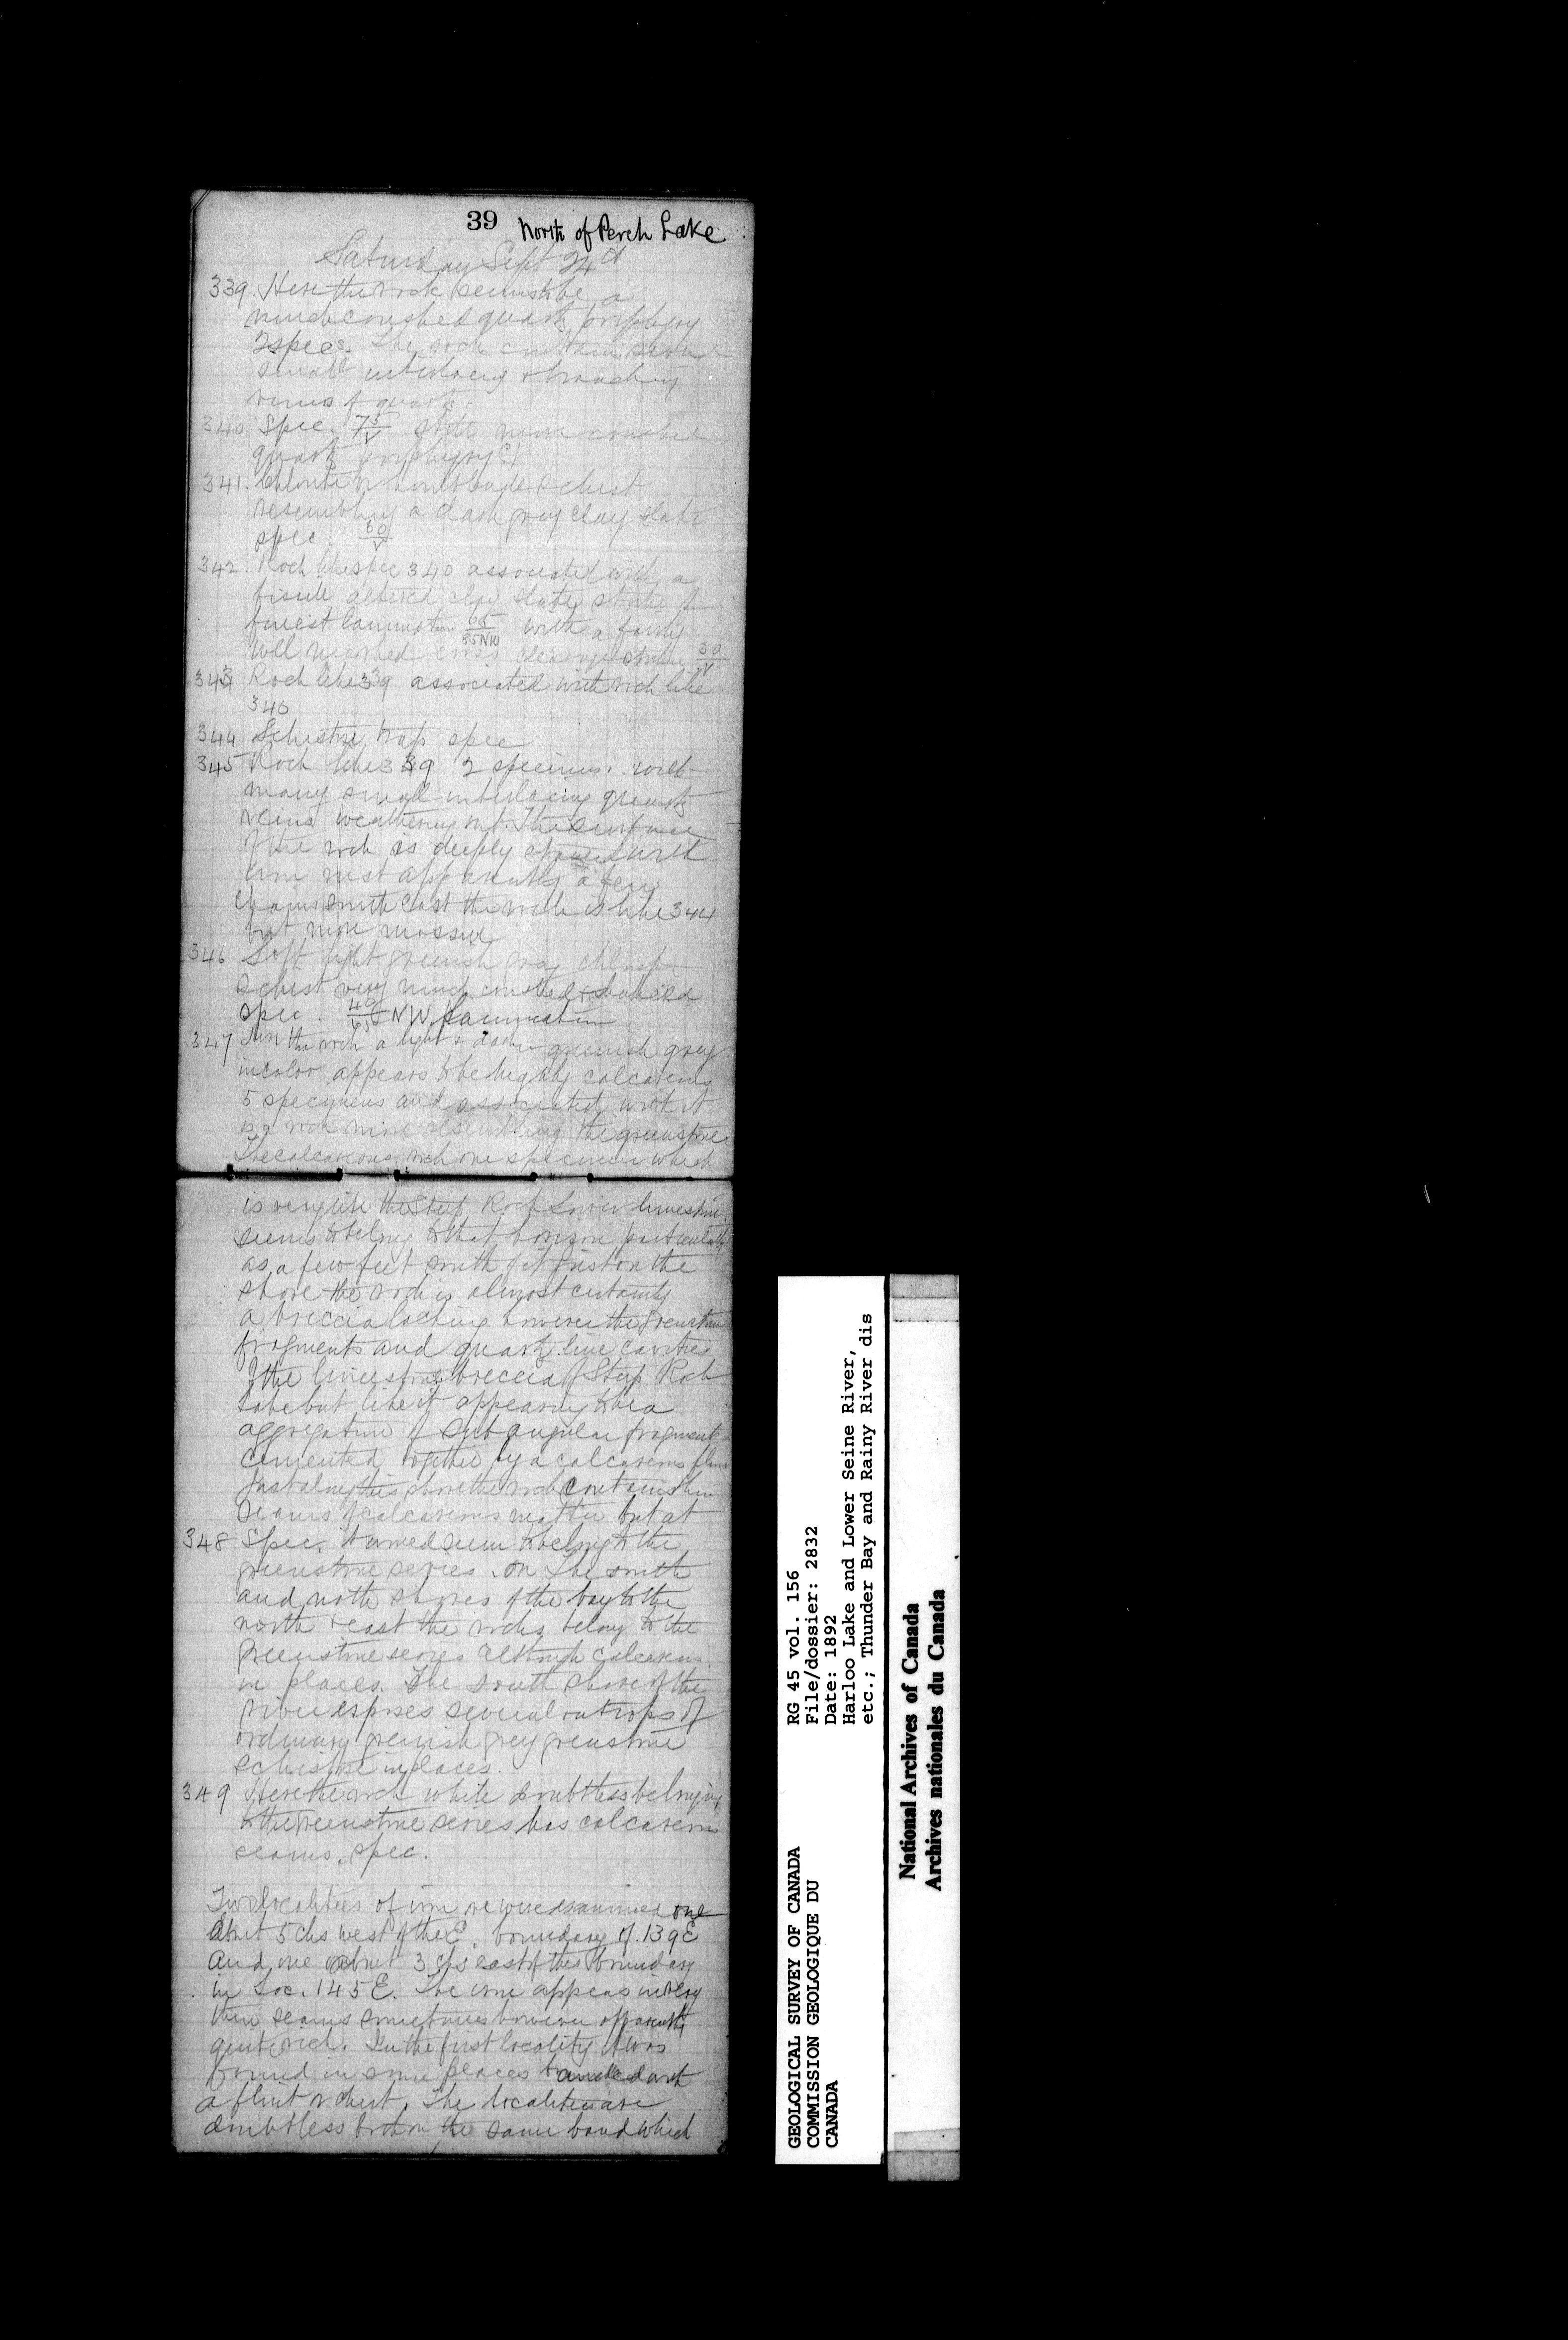 39 North of Perch Lake
Saturday Sept 24th
339. Here the rock seems to be a
much crushed quartz porphyry
2 specs. The rock contains several
small interlacing & branching
veins of quartz.
340 Spec. 75/V still more crushed
quartz porphyry(?)
341. Chlorite or hornblende schist
resembling a dark grey clay slate
spec. 80/V
342. Rock like spec 340 associated with a
fissile altered clay slate strike of
finest lamination 65/85NW with a fairly
well marked cross cleavage strike 30/V
343 Rock like 339 associated with rock like
340
344 Schistose trap spec
345 Rock like 339 2 specimens. with
many small interlacing quartz
veins weathering out. The surface
of the rock is deeply stained with
iron rust apparently a few
chains south east the rock is like 344
but more massive
346 Soft light greenish gray chlorite
schist very much crushed &
spec. 40/65 NW lamination
347 Here the rock a light & darker greenish grey
in color appears to be highly calcareous
5 specimens and associated with it
is a rock more resembling the greenstone
The calcareous rock one specimen which
is very like the Steep Rock Lower limestone
seems to belong to that horizon particularly
as a few feet south of it just on the
shore the rock is almost certainly
a breccia lacking however the greenstone
fragments and quartz line cavities
of the limestone breccia of Steep Rock
Lake but like it appearing to be a
aggregation of subangular fragments
cemented together by a calcareous
Just along this shore the rock contains thin
seams of calcareous matter but at
348 Spec. it would seem to belong to the
greenstone series. On the south
and north shores of the bay to the
north & east the rocks belong to the
greenstone series although calcareous
in places. The south shore of the
river exposes several outcrops of
ordinary greenish grey greenstone
schistose in places.
349 Here the rock while doubtless belonging
to the greenstone series has calcareous
seams. spec.
Two localities of iron ore were examined one
about 5 chs west of the E. boundary of 139E
and one about 3 chs east of this boundary
in Loc. 145E. The iron appears in very
thin seams sometimes however apparently
quite rich. In the first locality it was
found in some places banded with
a flint or chert. The localities are
doubtless both on the same band which
GEOLOGICAL SURVEY OF CANADA
COMMISSION GEOLOGIQUE DU
CANADA
RG 45 vol. 156
File/dossier: 2832
Date: 1892
Harloo Lake and Lower Seine River,
etc.; Thunder Bay and Rainy River dis
National Archives of Canada
Archives nationales du Canada